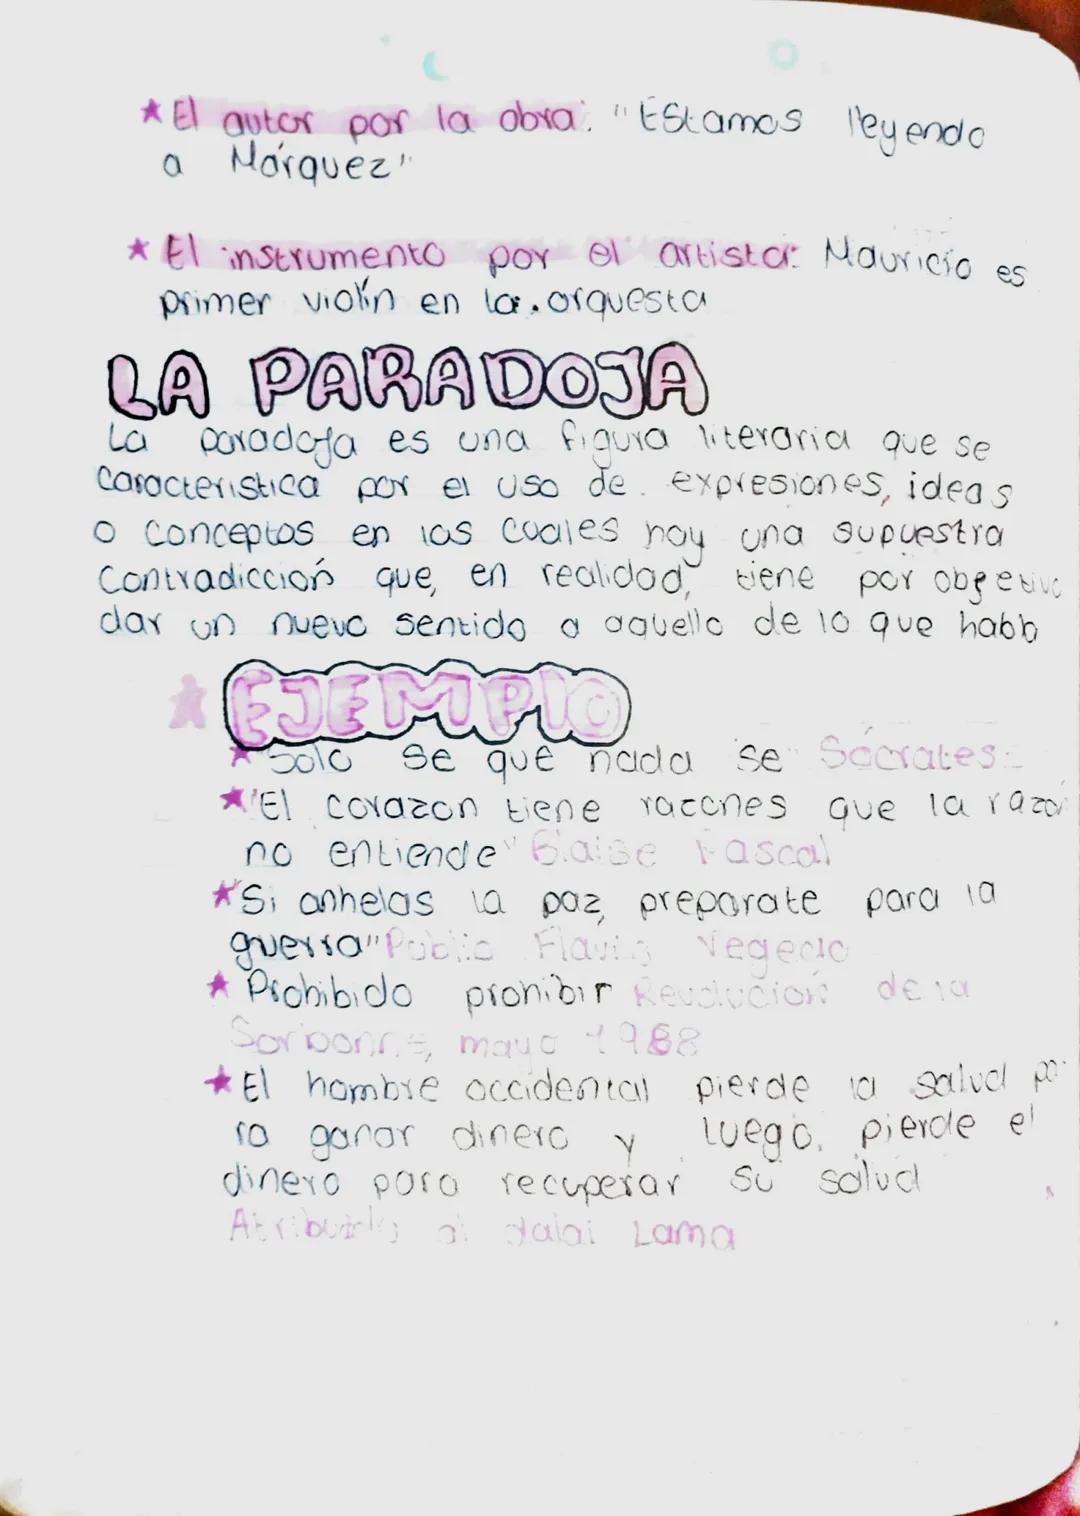 ★ El autor por la obra: "Estamos leyendo
a Márquez"
★ El instrumento por el artista: Mauricio es
primer violín en la orquesta
LA PARADOJA
La paradoja es una figura literaria que se
Caracteristica por el uso de expresiones, ideas
o conceptos en las cuales hay una supuestra
Contradicción que, en realidad, tiene por obgetivo
dar un nuevo sentido a aquello de lo que habb
★ EJEMPlO
★ "Solo se que nada se" Sócrates
★ "El corazon tiene razones que la razon
no entiende" Blaise Pascal
★ "Si anhelas la paz, preparate para la
guerra" Publio Flavio Vegecio
★ Prohibido prohibir Revolución de la
Sorbonne, mayo 1968
★ El hombre occidental pierde la salud pa-
ra ganar dinero y luego, pierde el
dinero para recuperar su salud
Atribuido al dalai Lama